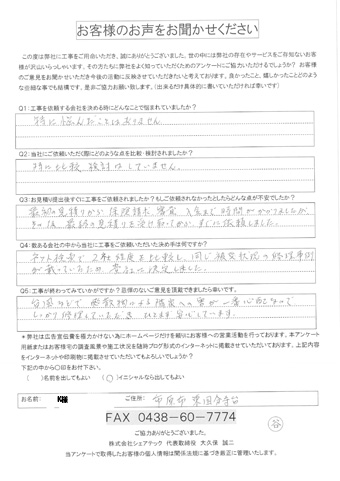 お客様のお声をお聞かせください
この度は弊社に工事をご用命いただき、誠にありがとうございました。世の中には弊社の存在やサービスをご存知ないお客
様が沢山いらっしゃいます。その方たちも弊社をよく知っていただくためのアンケートにご協力いただけるでしょうか? お客様
のご意見をお聞かせいただき今後の活動に反映させていただきたいと考えております。良かったこと、嬉しかったことどのよう
な些細な事でも結構です。是非ご協力お願い致します。(出来るだけ具体的に書いていただければ幸いです)
Q1:工事を依頼する会社を決める時にどんなことで悩まれていましたか?
特に悩んだことはありません
Q2:当社にご依頼いただく際にどのような点を比較・検討されましたか?
特に比較検討はしていません。
Q3:お見積り提出後すぐに工事をご依頼されましたか?もしご依頼されなかったとしたらどんな点が不安でしたか?
最初の見積りから保険請求、審査、入金まで時間がかかりましたが、
その後、最終の見積りを受け取ってから、すぐに依頼しました。
Q4:数ある会社の中から当社に工事をご依頼いただいた決め手は何ですか?
ネット検索で2社程度を比較し、同じ被災状況の修理事例
が載っていたため、貴社に決定しました。
Q5:工事が終わってみていかがですか?忌憚のないご意見を頂戴できましたら幸いです。
台風などで
しっかり修理していただき
*弊社は広告宣伝費を極力かけない為にホームページだけを頼りにお客様への営業活動を行っております。本アンケート
用紙またはお客様宅の調査風景や施工状況を随時ブログ形式のインターネットに掲載させていただいております。上記内容
をインターネットや印刷物に掲載いたしてもよろしいでしょうか?
下記の中から○印をお付下さい。
( )名前を出してもよい (○)イニシャルなら出してもよい
お名前: K ご住所: 市原市 東国分寺台
FAX 0438-60-7774
ご協力ありがとうございました。
株式会社シェアテック 代表取締役 大久保 誠二
当アンケートで取得したお客様の個人情報は関係法規に基づき厳正に管理いたします。